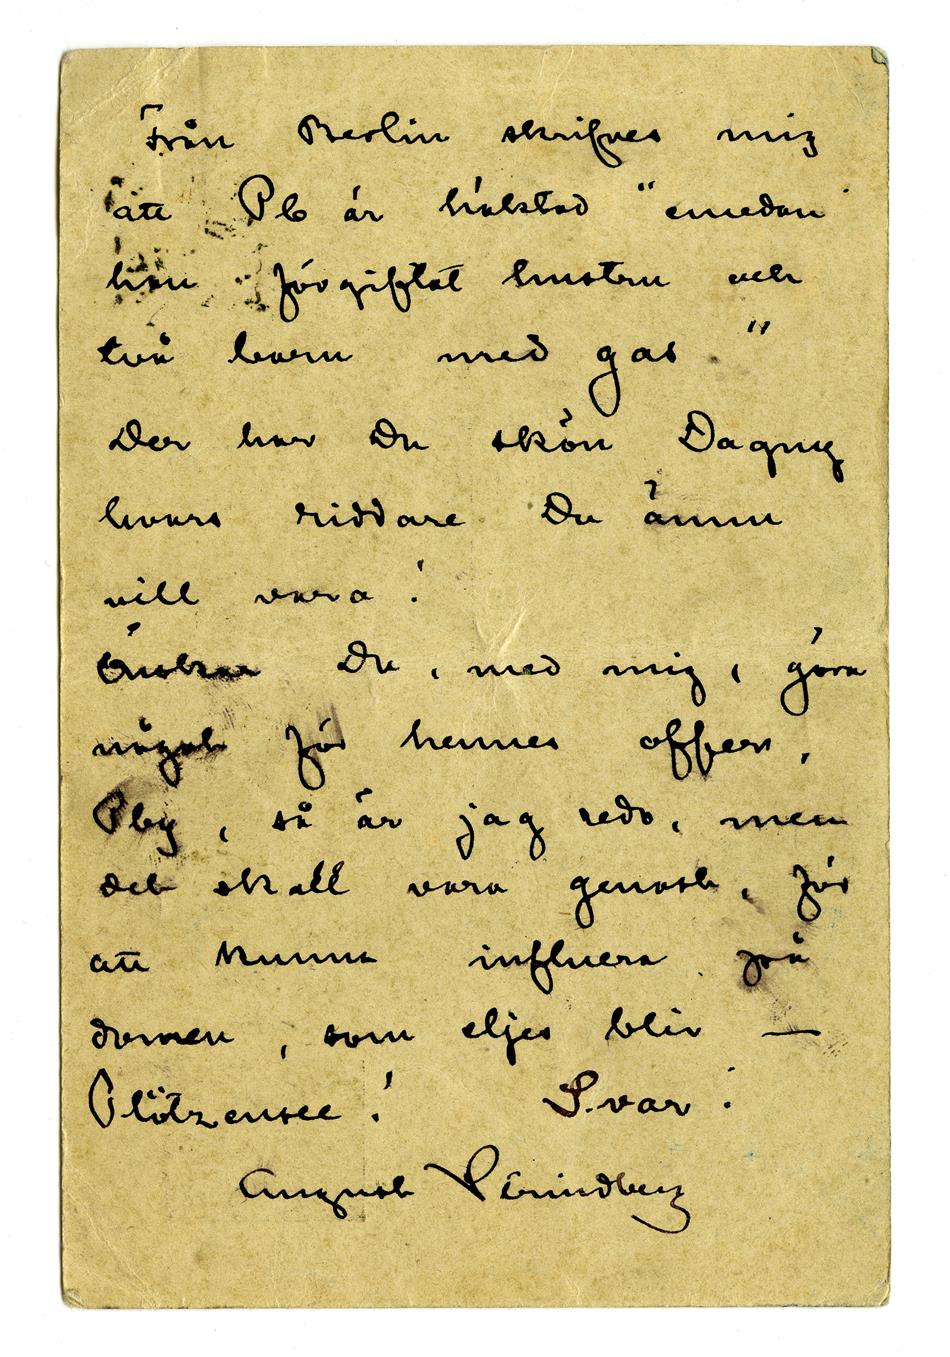 Från Berlin skrifves mig
att Pb är häktad "emedan
han förgiftat hustru och
två barn med gas."
Der har Du skön Dagny
hvars riddare Du ännu
vill vara!
Önskar Du, med mig, göra
något för hennes offer,
Pby, så är jag redo, men
det skall vara genast, för
att kunna influera på
domen, som eljes blir —
Plötzensee! Svar!
August Strindberg